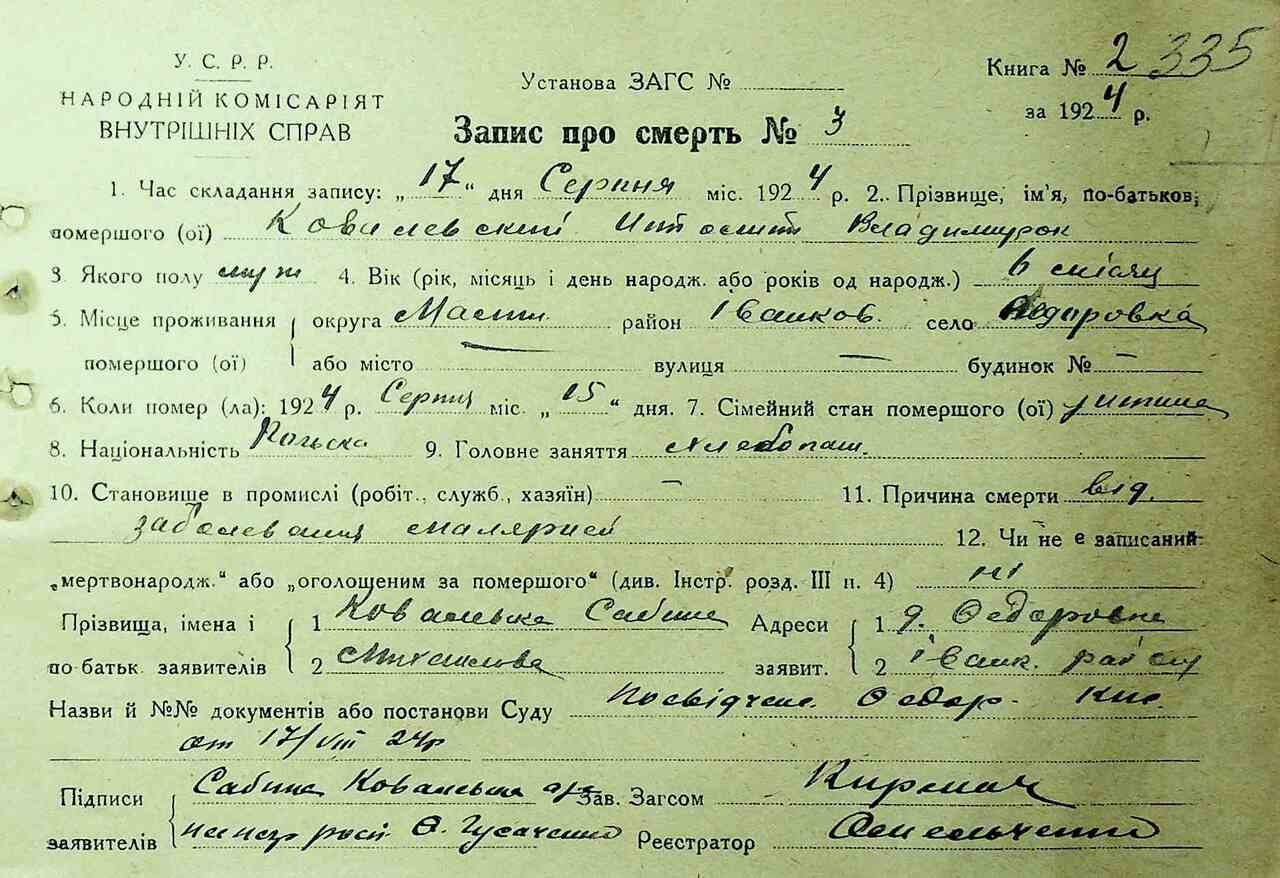 У. С. Р. Р.
НАРОДНІЙ КОМІСАРІЯТ
ВНУТРІШНІХ СПРАВ
Установа ЗАГС №
Книга № 2 335
за 1924 р.
Запис про смерть № 3
1. Час складання запису: „17“ дня Серпня міс. 1924 р. 2. Прізвище, ім'я, по-батьков,
помершого (ої) Ковалевский Владимиров
3. Якого полу муж 4. Вік (рік, місяць і день народж. або років од народж.) 6 місяц
5. Місце проживання округа район Іванков. село Федоровка
помершого (ої) або місто — вулиця — будинок № —
6. Коли помер (ла): 1924 р. Серпня міс. „15“ дня. 7. Сімейний стан помершого (ої)
8. Національність Польска 9. Головне заняття Хлебопаш.
10. Становище в промислі (робіт., служб., хазяїн) — 11. Причина смерти від.
заболевания малярией 12. Чи не є записаний
„мертвонародж.“ або „оголошеним за помершого“ (див. Інстр. розд. III п. 4) ні
Прізвища, імена і 1 Ковальська Сабина Адреси 1 д. Федоровка
по батьк. заявителів 2 Михайлова заявит. 2 Іванк. району
Назви й №№ документів або постанови Суду Посвідчене Федор.
от 17/VIII 24р
Підписи Сабина Ковальська Зав. Загсом
заявителів Гусаченко Реєстратор Омельченко